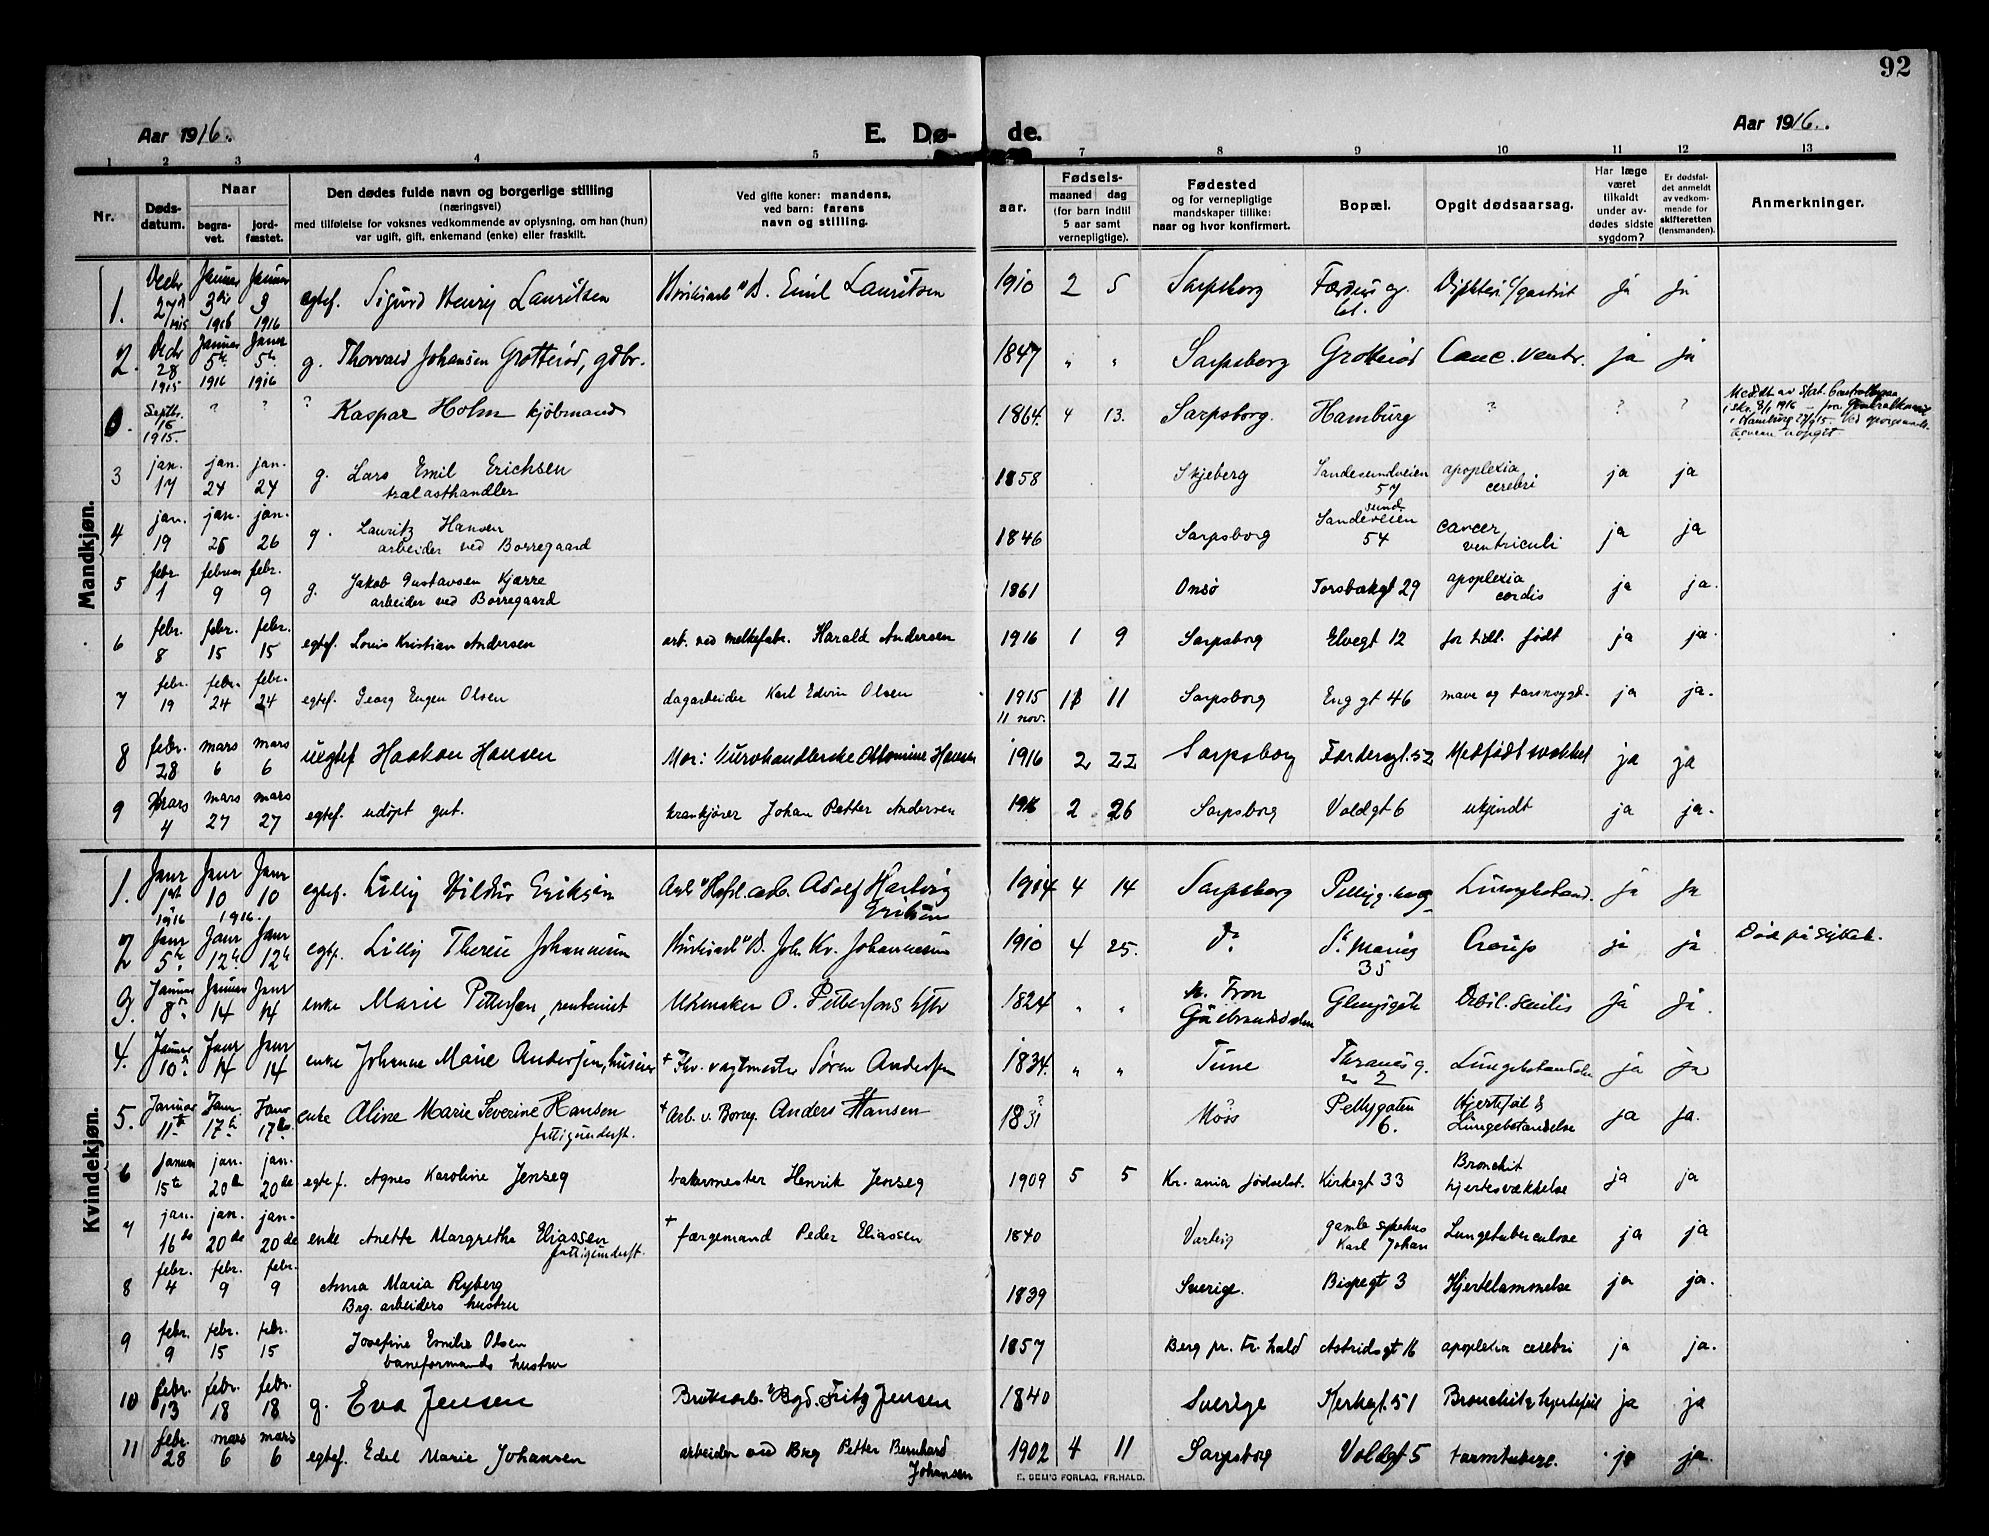 92
Aar 1916. E. Dø- de. Aar 1916.
1 2 3 4 5 7 8 9 10 11 12 13
Nr. Døds-datum. Naar begra-vet. jord-fæstet. Den dødes fulde navn og borgerlige stilling (næringsvei) med tilføielse for voksnes vedkommende av oplysning, om han (hun) var ugift, gift, enkemand (enke) eller fraskilt. Ved gifte koner: mandens, ved barn: farens navn og stilling. Fødsels- aar. maaned dag (for barn indtil 5 aar samt vernepligtige). Fødested og for vernepligtige mandskaper tillike: naar og hvor konfirmert. Bopæl. Opgit dødsaarsag. Har læge været tilkaldt under av-dødes sidste sygdom? Er dødsfal-det anmeldt av vedkom-mende for skifteretten (lensmanden). Anmerkninger.
Mandkjøn.
1. Decbr 27 1915 Januar 3 1916 Januar 3 1916 egtef. Sigurd Henry Lauritsen Emil Lauritsen 1910 2 5 Sarpsborg ja ja
2. Decbr 28 1915 Januar 5 1916 Januar 5 1916 g. Thorvald Johansen Grotterød, gdbr. 1847 " " Sarpsborg Grotterød Canc. ventr. ja ja
0. Septbr. 16 1915. ? ? ? Kaspar Holm kjøbmand 1864. 4 13. Sarpsborg. Hamburg ? ? ?
3 jan. 17 jan. 24 jan. 24 g. Lars Emil Erichsen trælasthandler 1858 Skjeberg Sandesundveien 57 apoplexia cerebri ja ja
4 jan. 19 jan. 26 jan. 26 g. Lauritz Hansen arbeider ved Borregaard 1846 Sarpsborg Sandesundveien 54 cancer ventriculi ja ja
5 febr. 1 februar 9 febr. 9 g. Jakob Gustavsen Kjærre arbeider ved Borregaard 1861 Onsø Torsbækgt 29 apoplexia cordis ja ja.
6 febr. 8 febr. 15 febr. 15 egtef. Louis Kristian Andersen arb. ved melkefabr. Harald Andersen 1916 1 9 Sarpsborg Elvegt 12 for tidl. født ja ja.
7 febr. 19 febr. 24 febr. 24 egtef. Georg Eugen Olsen dagarbeider Karl Edvin Olsen 1915 11 nov. 11 11 Sarpsborg Enggt 46 mave og tarmsygd. ja ja.
8 febr. 28 mars 6 mars 6 uegtef Haakon Hansen Mor: Ottomine Hansen 1916 2 22 Sarpsborg Færdergt. 52 Medfødt svakhet ja ja
9 Mars 4 mars 27 mars 27 egtef. udøpt gut. krankjører Johan Petter Andersen 1916 2 26 Sarpsborg Voldgt 6 ukjendt ja ja.
Kvindekjøn.
1. Janr 1st 1916 Janr 10 1916. Janr 10 egtef. Lilly Hildur Eriksen Adolf Hartvig Eriksen 1914 4 14 Sarpsborg ja ja
2 Janr 5te. Janr 12te Janr 12te egtf. Lilly Johannesen Joh. Kr. Johannesen 1910 4 25. Do St. Marieg 35 Croup ja ja Død på sykeh.
3. Januar 8de. Januar 14 Janr 14 enke Marie Pettersen, rentenist Uhrmaker O. Pettersens 1824 " " N. Fron Gudbrandsdalen Glengsgate Debil. senilis ja ja.
4. Januar 10de. Janr 14 Janr 14 enke Johanne Marie Andersen, + Fhv. vagtmester Søren Andersen 1834. " " Tune Thranesg. 2 Lungebetændelse ja ja
5. Januar 11te Janr. 17de Janr 17de enke Aline Marie Severine Hansen fattigunderst. + Arb. v. Borreg. Anders Hansen 1831 ? Moss ? Pellygaten 6. Hjertefeil & Lungebetændelse ja ja.
6 Januar 15te jan. 20de jan. 20de egtef. Agnes Karoline Jenseg bakermester Henrik Jenseg 1909 5 5 Kr.ania fødselst. Kirkegt 33 Bronchit hjertesvækkelse ja ja
7 jan. 16de jan. 20de jan. 20de enke Anette Margrethe Eliassen fattigunderst. + færgemand Peder Eliassen 1840 Varteig gamle sykehus Karl Johan Lungetuberculose ja ja
8 febr. 4 febr. 9 febr. 9 Anna Maria Ryberg Brg. arbeiders hustru 1839 Sverige. Bispegt 3 Hjertelammelse ja ja.
9 febr. 9 febr. 15 febr. 15 Josefine Emilie Olsen baneformands hustru 1857 Berg pr. Fr.hald Astridsgt 16 apoplexia cerebri ja ja.
10 febr. 13 febr. 18 febr. 18 g. Eva Jensen Fritz Jensen 1840 Sverige Kirkegt. 51 Bronchit & hjertefeil ja ja
11 febr. 28 mars 6 mars 6 egtef. Edel Marie Johansen arbeider ved Brg Petter Bernhard Johansen 1902 4 11 Sarpsborg Voldgt 5 tarmtuberc. ja ja.
E. SEM'S FORLAG, FR.HALD.